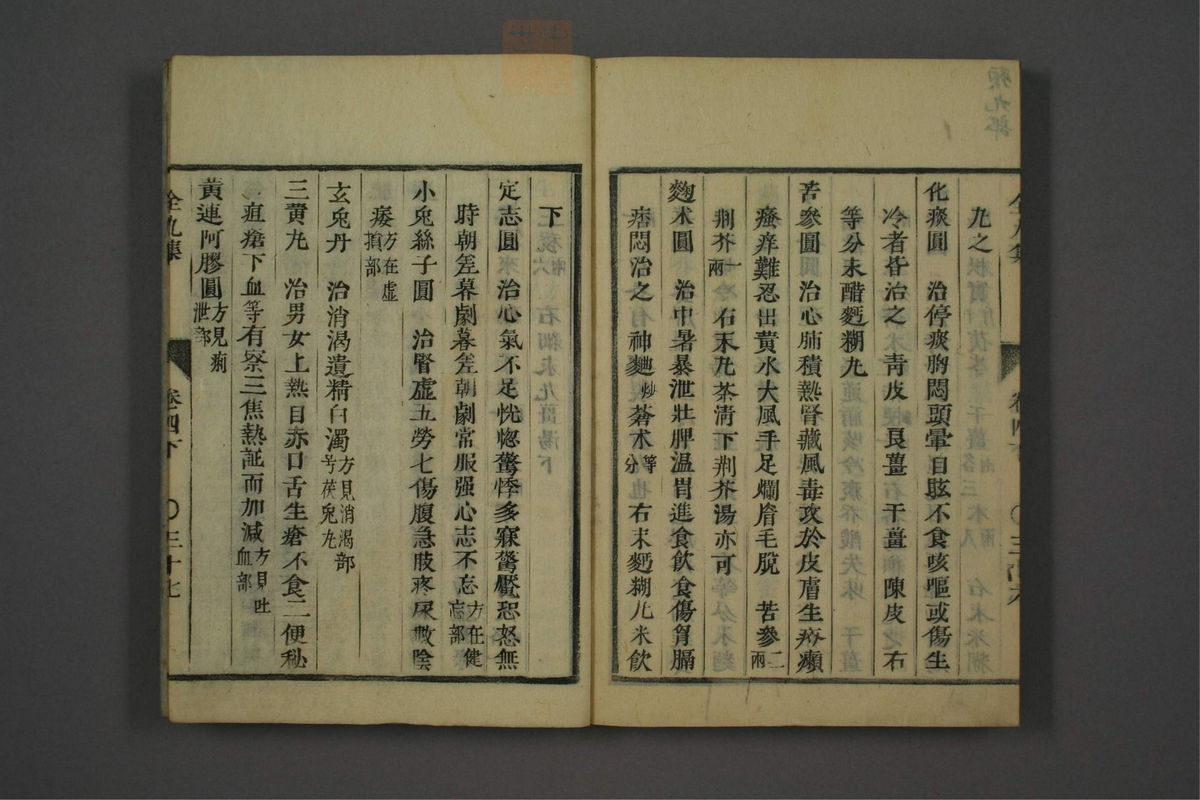 化痰圓　治停痰胸悶頭暈目眩不食咳嘔或傷生
冷者昏治之 青皮 良薑 干薑 陳皮 右
等分末醋麪糊丸
苦參圓　治心肺積熱腎藏風毒攻於皮膚生疥癩
瘙痒難忍出黄水大風手足爛眉毛脫　苦參二兩
荆芥一兩 右末丸茶清下荆芥湯亦可
麴术圓　治中暑暴泄壯脾温胃進食飲食傷胷膈
痞悶治之 神麯炒 蒼术等分 右末麪糊丸米飲
下
定志圓　治心氣不足恍惚驚悸多寐驚魘恐怒無
時朝差暮劇暮差朝劇常服强心志不忘方在健忘部
小兎絲子圓　治腎虚五勞七傷腹急肢疼尿數陰
痿方在虚損部
玄兎丹　治消渴遺精白濁方見消渴部号茯兎丸
三黄丸　治男女上熱目赤口舌生瘡不食二便秘
疽瘡下血等有察三焦熱証而加減方見吐血部
黃連阿膠圓方見痢泄部
全九集
卷四下
〇三十七